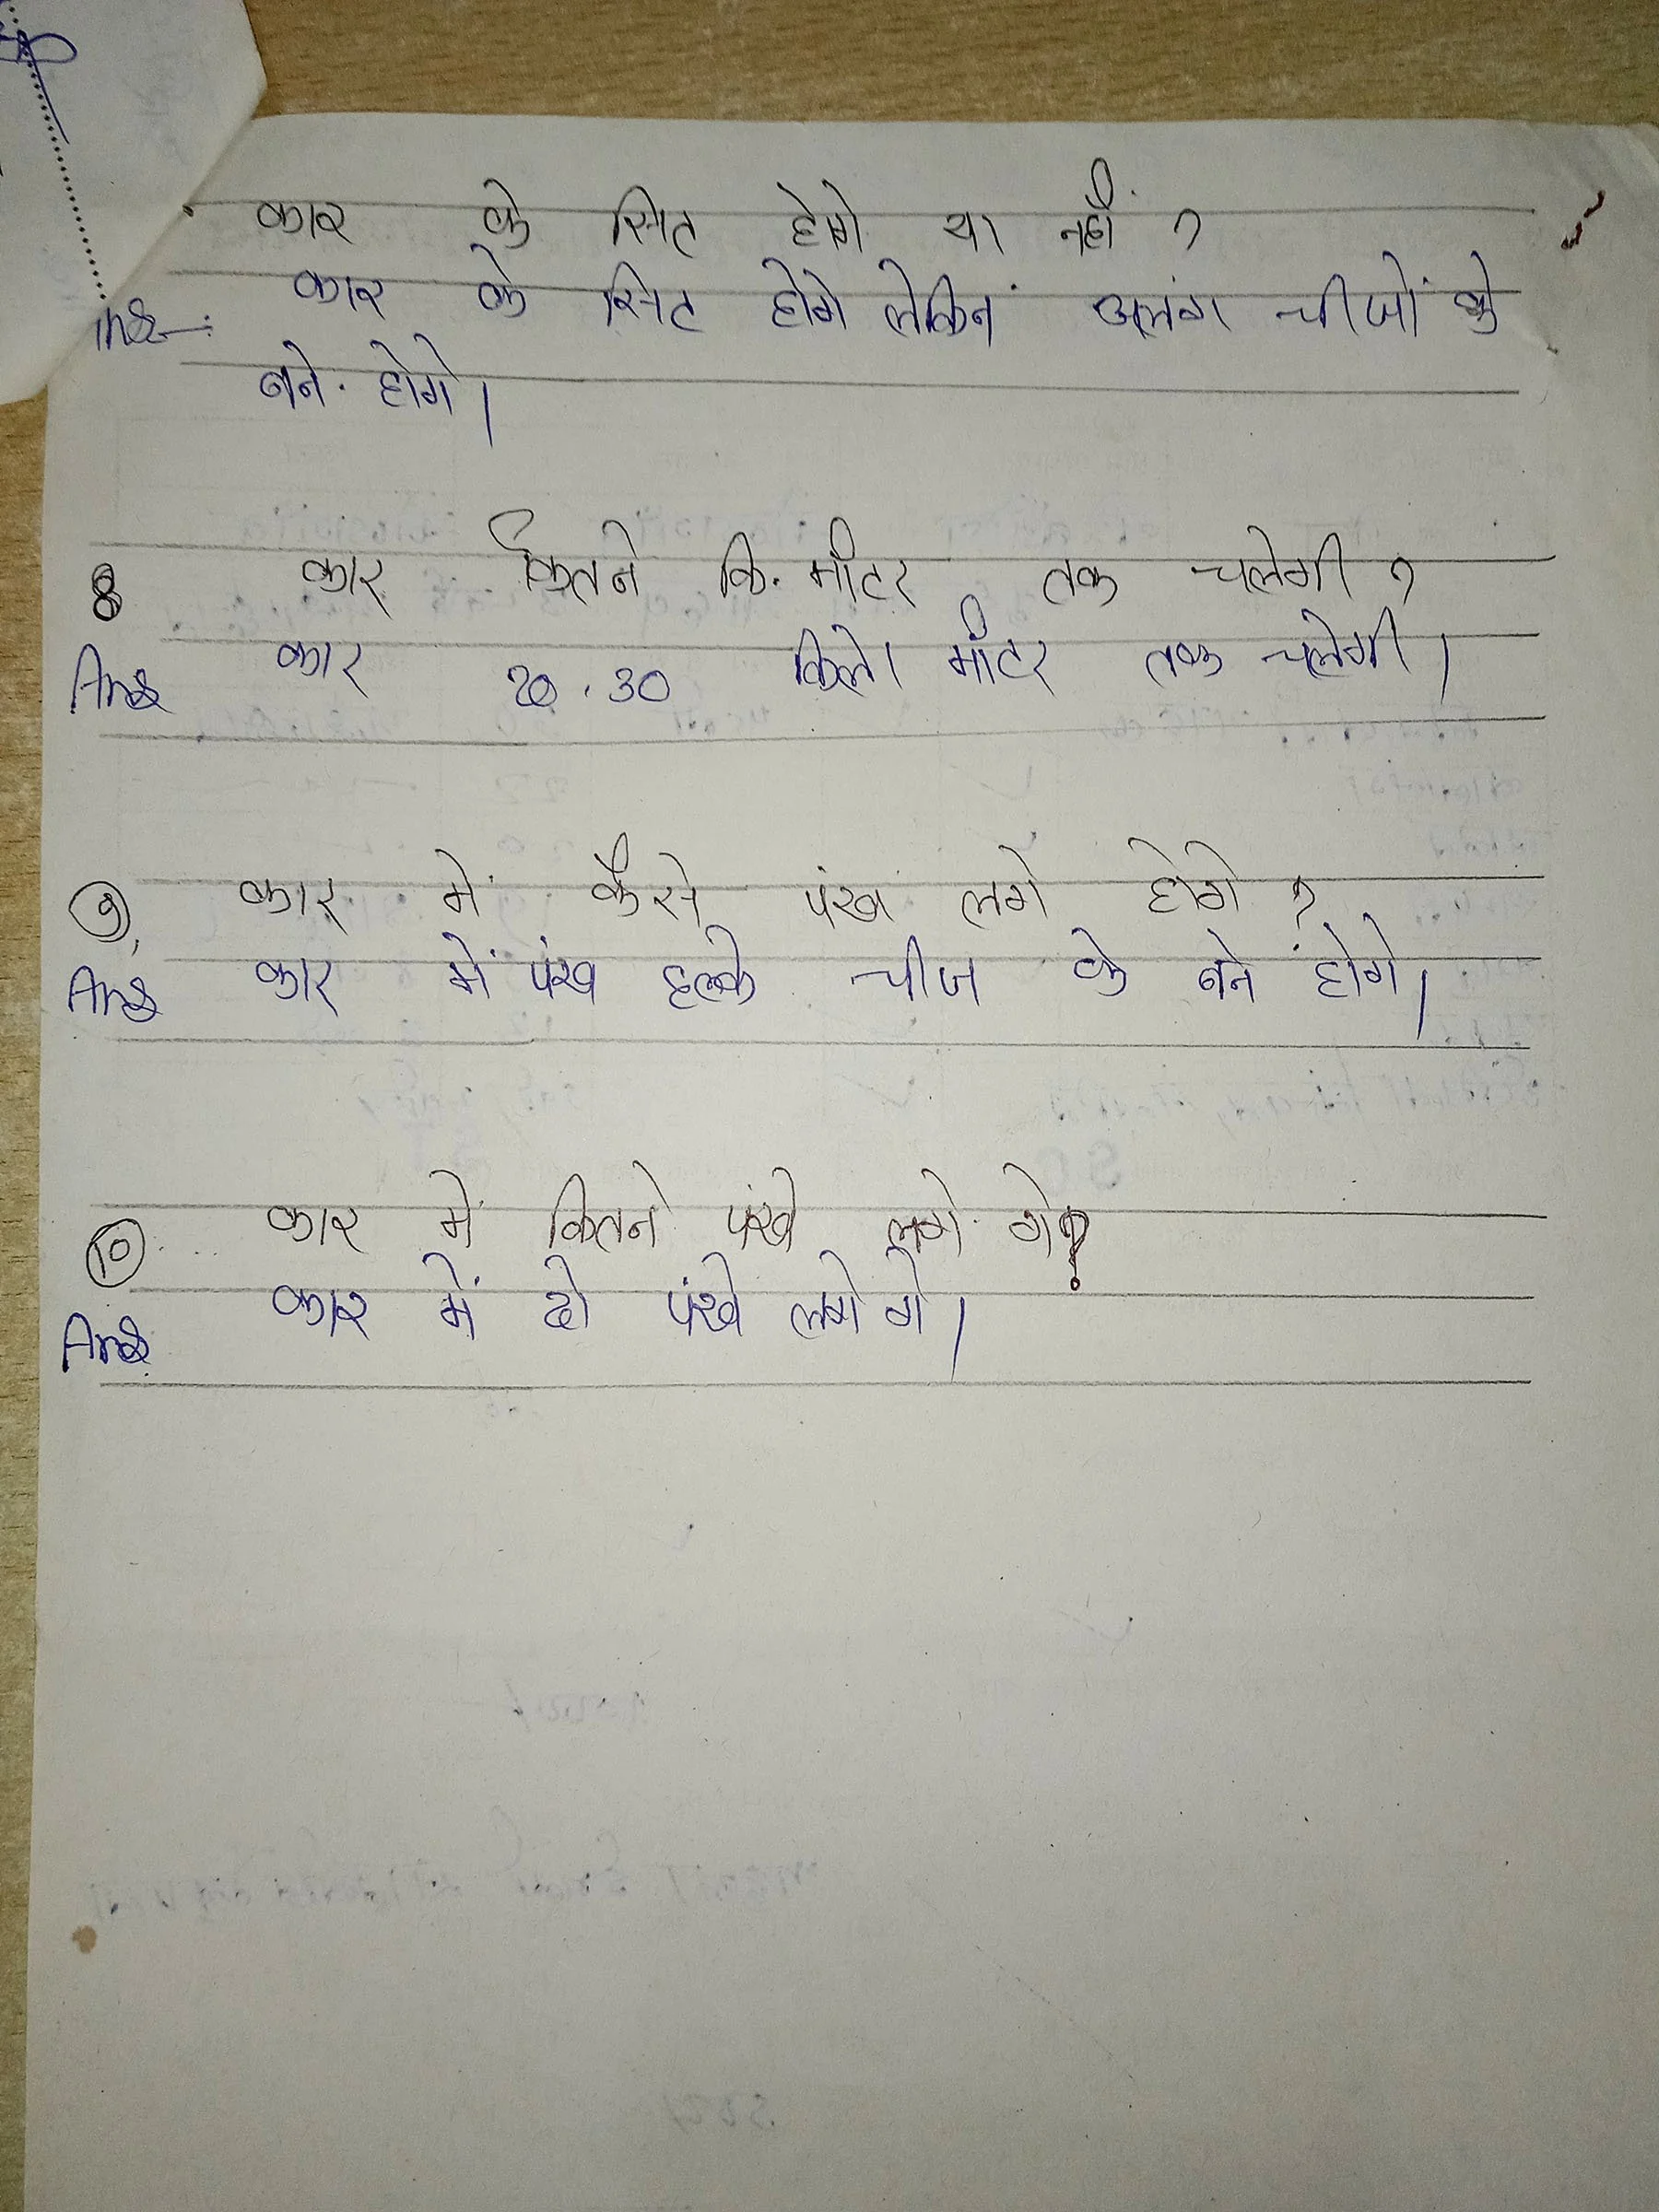 कार के सित होगे या नहीं ?
Ans-: कार के सिट होगे लेकिन अलंग चीजों के
बने. होगे।
8 कार कितने कि. मीटर तक चलेगी ?
Ans कार 20,30 किलो मीटर तक चलेगी।
9, कार में कैसे पंख लगे होगे ?
Ans कार में पंख हल्के चीज के बने होगे।
10. कार में कितने पंखे लगे. गे?
Ans कार में दो पंखे लगेगे।